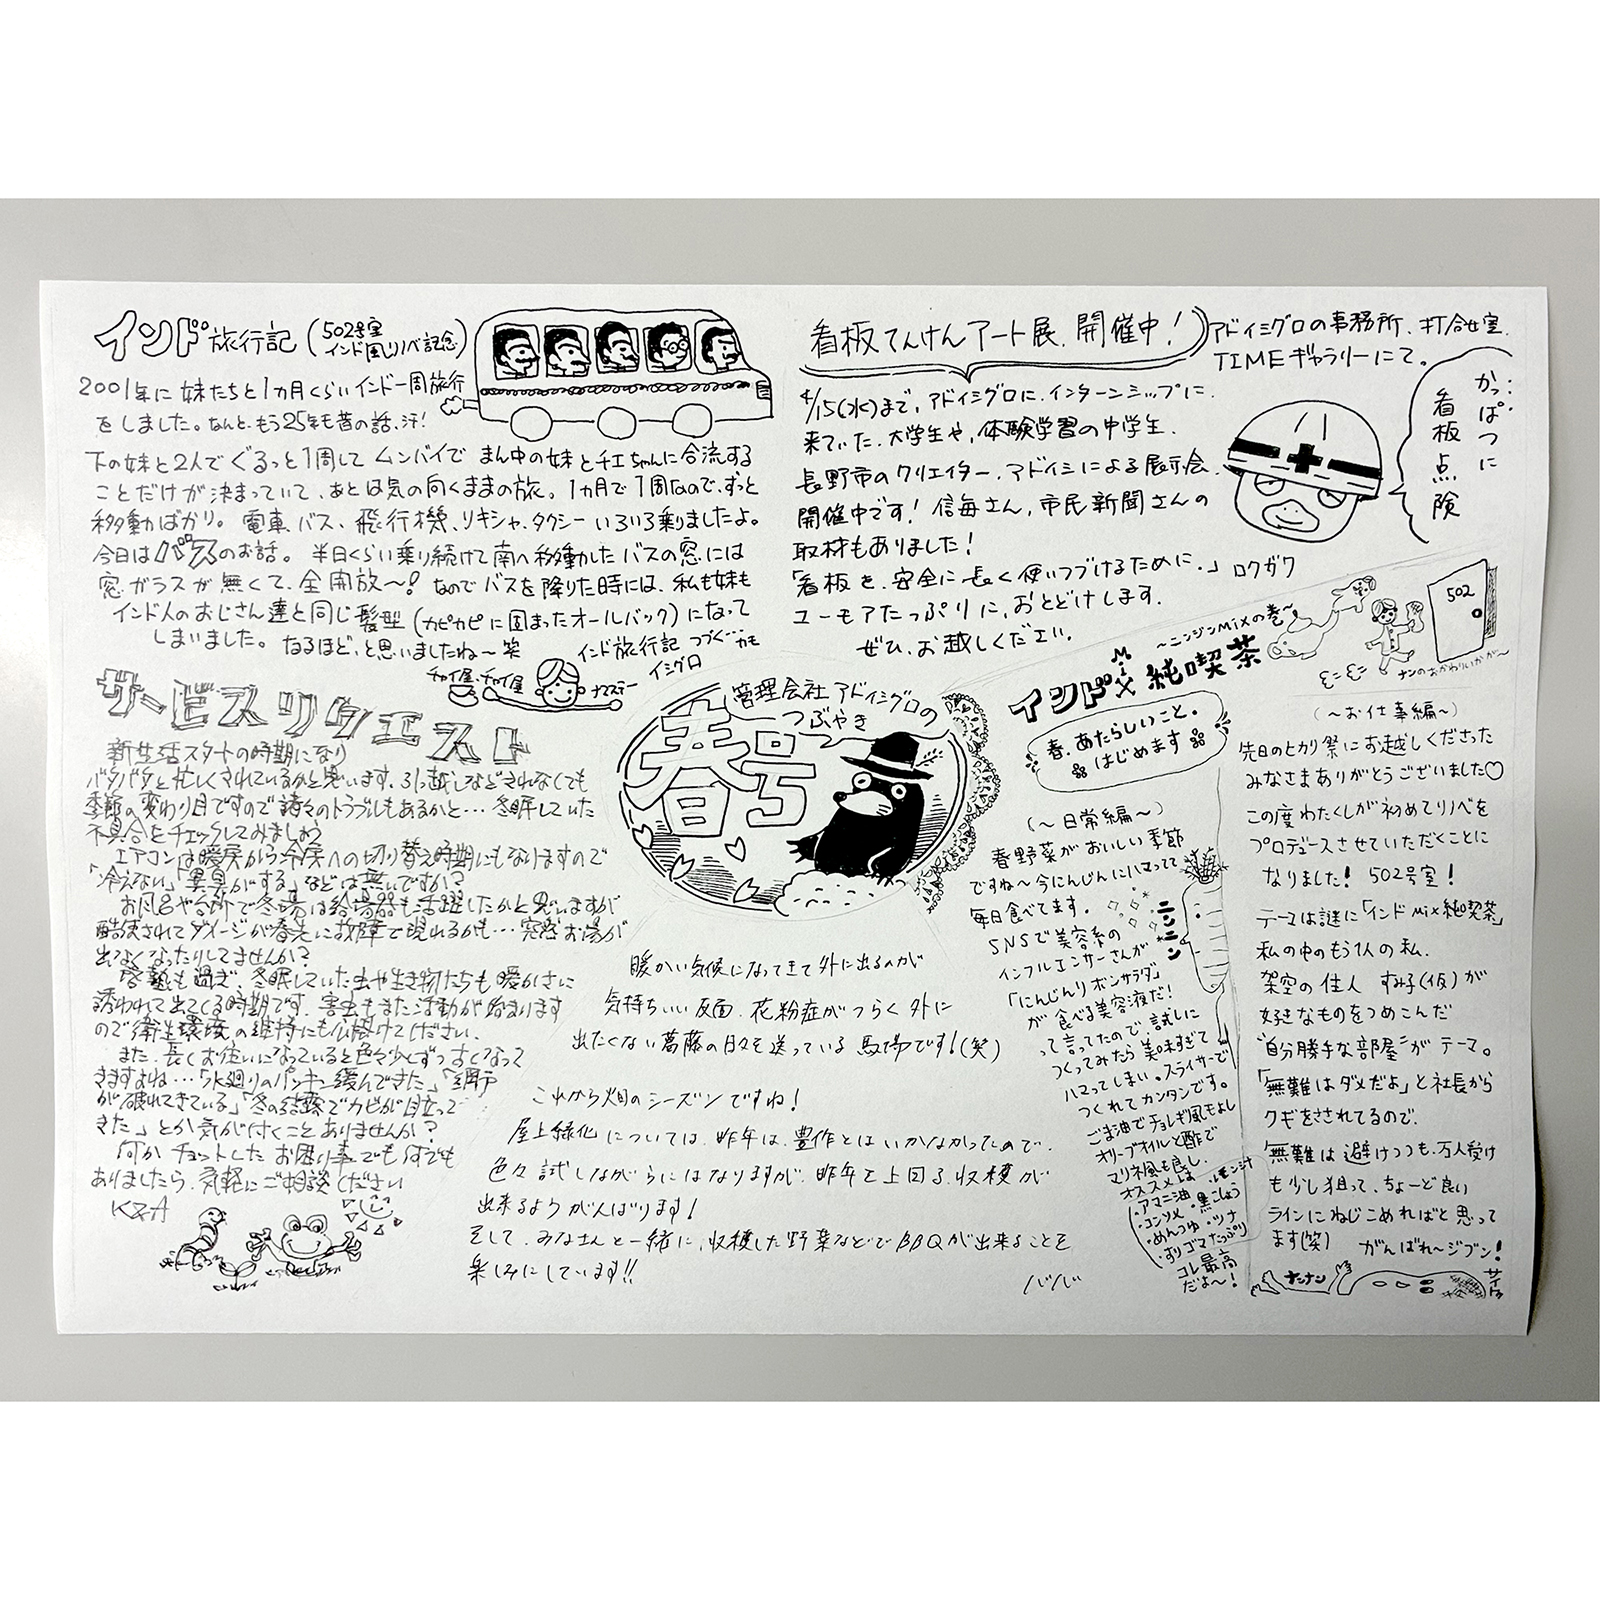 インド旅行記 (502号室 インド風リノベ記念)
2001年に妹たちと1カ月くらいインド一周旅行
をしました。なんと、もう25年も昔の話、汗!
下の妹と2人でぐるっと1周してムンバイでまん中の妹とチエちゃんに合流する
ことだけが決まっていて、あとは気の向くままの旅。1カ月で1周なので、ずっと
移動ばかり。電車、バス、飛行機、リキシャ、タクシーいろいろ乗りましたよ。
今日はバスのお話。半日くらい乗り続けて南へ移動したバスの窓には
窓ガラスが無くて、全開放〜!なのでバスを降りた時には、私も妹も
インド人のおじさん達と同じ髪型(カピカピに固まったオールバック)になって
しまいました。なるほど、と思いましたね〜笑
インド旅行記 つづく…かも
イシグロ
チャイ屋・チャイ屋
ナマステー
看板てんけんアート展、開催中!
アドイシグロの事務所、打合せ室、
TIMEギャラリーにて。
4/15(水)まで、アドイシグロに、インターンシップに
来ていた、大学生や、体験学習の中学生、
長野市のクリエイター、アドイシによる展示会
開催中です!信毎さん、市民新聞さんの
取材もありました!
「看板を、安全に長く使いつづけるために。」
ユーモアたっぷりに、おとどけします。
ぜひ、お越しください。
ロクガワ
かっぱつに
看板点険
サービスリクエスト
新生活スタートの時期になり
バタバタと忙しくされているかと思います。引っ越しなどされなくても
季節の変わり目ですので諸々のトラブルもあるかと…冬眠していた
不具合をチェックしてみましょう
エアコンは暖房から冷房への切り替え時期にもなりますので
「冷えない」「異臭がする」などは無いですか?
お風呂や台所で冬場は給湯器も活躍したかと思いますが
酷使されてダメージが春先に故障で現れるかも…突然お湯が
出なくなったりしてませんか?
啓蟄も過ぎ、冬眠していた虫や生き物たちも暖かさに
誘われて出てくる時期です。害虫もまた活動が始まります
ので衛生環境の維持にも心掛けてください。
また、長くお住いになっていると色々少しずつ古くなって
きますよね…「水廻りのパッキン緩んできた」「網戸
が破れてきている」「冬の結露でカビが目立って
きた」とか気が付くことありませんか?
何かチョットしたお困り事でも何でも
ありましたら、気軽にご相談ください
K&A
管理会社アドイシグロの
つぶやき
春号
暖かい気候になってきて外に出るのが
気持ちいい反面、花粉症がつらく外に
出たくない葛藤の日々を送っている馬場です!(笑)
これから畑のシーズンですね!
屋上緑化については、昨年は、豊作とはいかなかったので、
色々試しながらにはなりますが、昨年を上回る収穫が
出来るようがんばります!
そして、みなさんと一緒に、収穫した野菜などでBBQが出来ることを
楽しみにしています!!
ババ
インド Mix 純喫茶
〜ニンジンMixの巻〜
502
ナンのおかわりいかが〜
春、あたらしいこと。
はじめます
(〜日常編〜)
春野菜がおいしい季節
ですね〜今にんじんにハマってて
毎日食べてます。
SNSで美容系の
インフルエンサーさんが
「にんじんリボンサラダ」
が食べる美容液だ!
って言ってたので、試しに
つくってみたら美味すぎて
ハマってしまい。スライサーで
つくれてカンタンです。
ごま油でチョレギ風もよし
オリーブオイルと酢で
マリネ風も良し。
オススメは・レモン汁
・アマニ油・黒こしょう
・コンソメ
・めんつゆ・ツナ
・すりゴマたっぷり
コレ最高
だよ〜!
ニンニン
(〜お仕事編〜)
先日のヒカリ祭にお越しくださった
みなさまありがとうございました♡
この度わたくしが初めてリノベを
プロデュースさせていただくことに
なりました! 502号室!
テーマは謎に「インドmix純喫茶」
私の中のもう1人の私、
架空の住人 すみ子(仮)が
好きなものをつめこんだ
"自分勝手な部屋"がテーマ。
「無難はダメだよ」と社長から
クギをさされてるので、
無難は避けつつも、万人受け
も少し狙って、ちょーど良い
ラインにねじこめればと思って
ます(笑)
がんばれ〜ジブン!
サイトウ
ナンナン